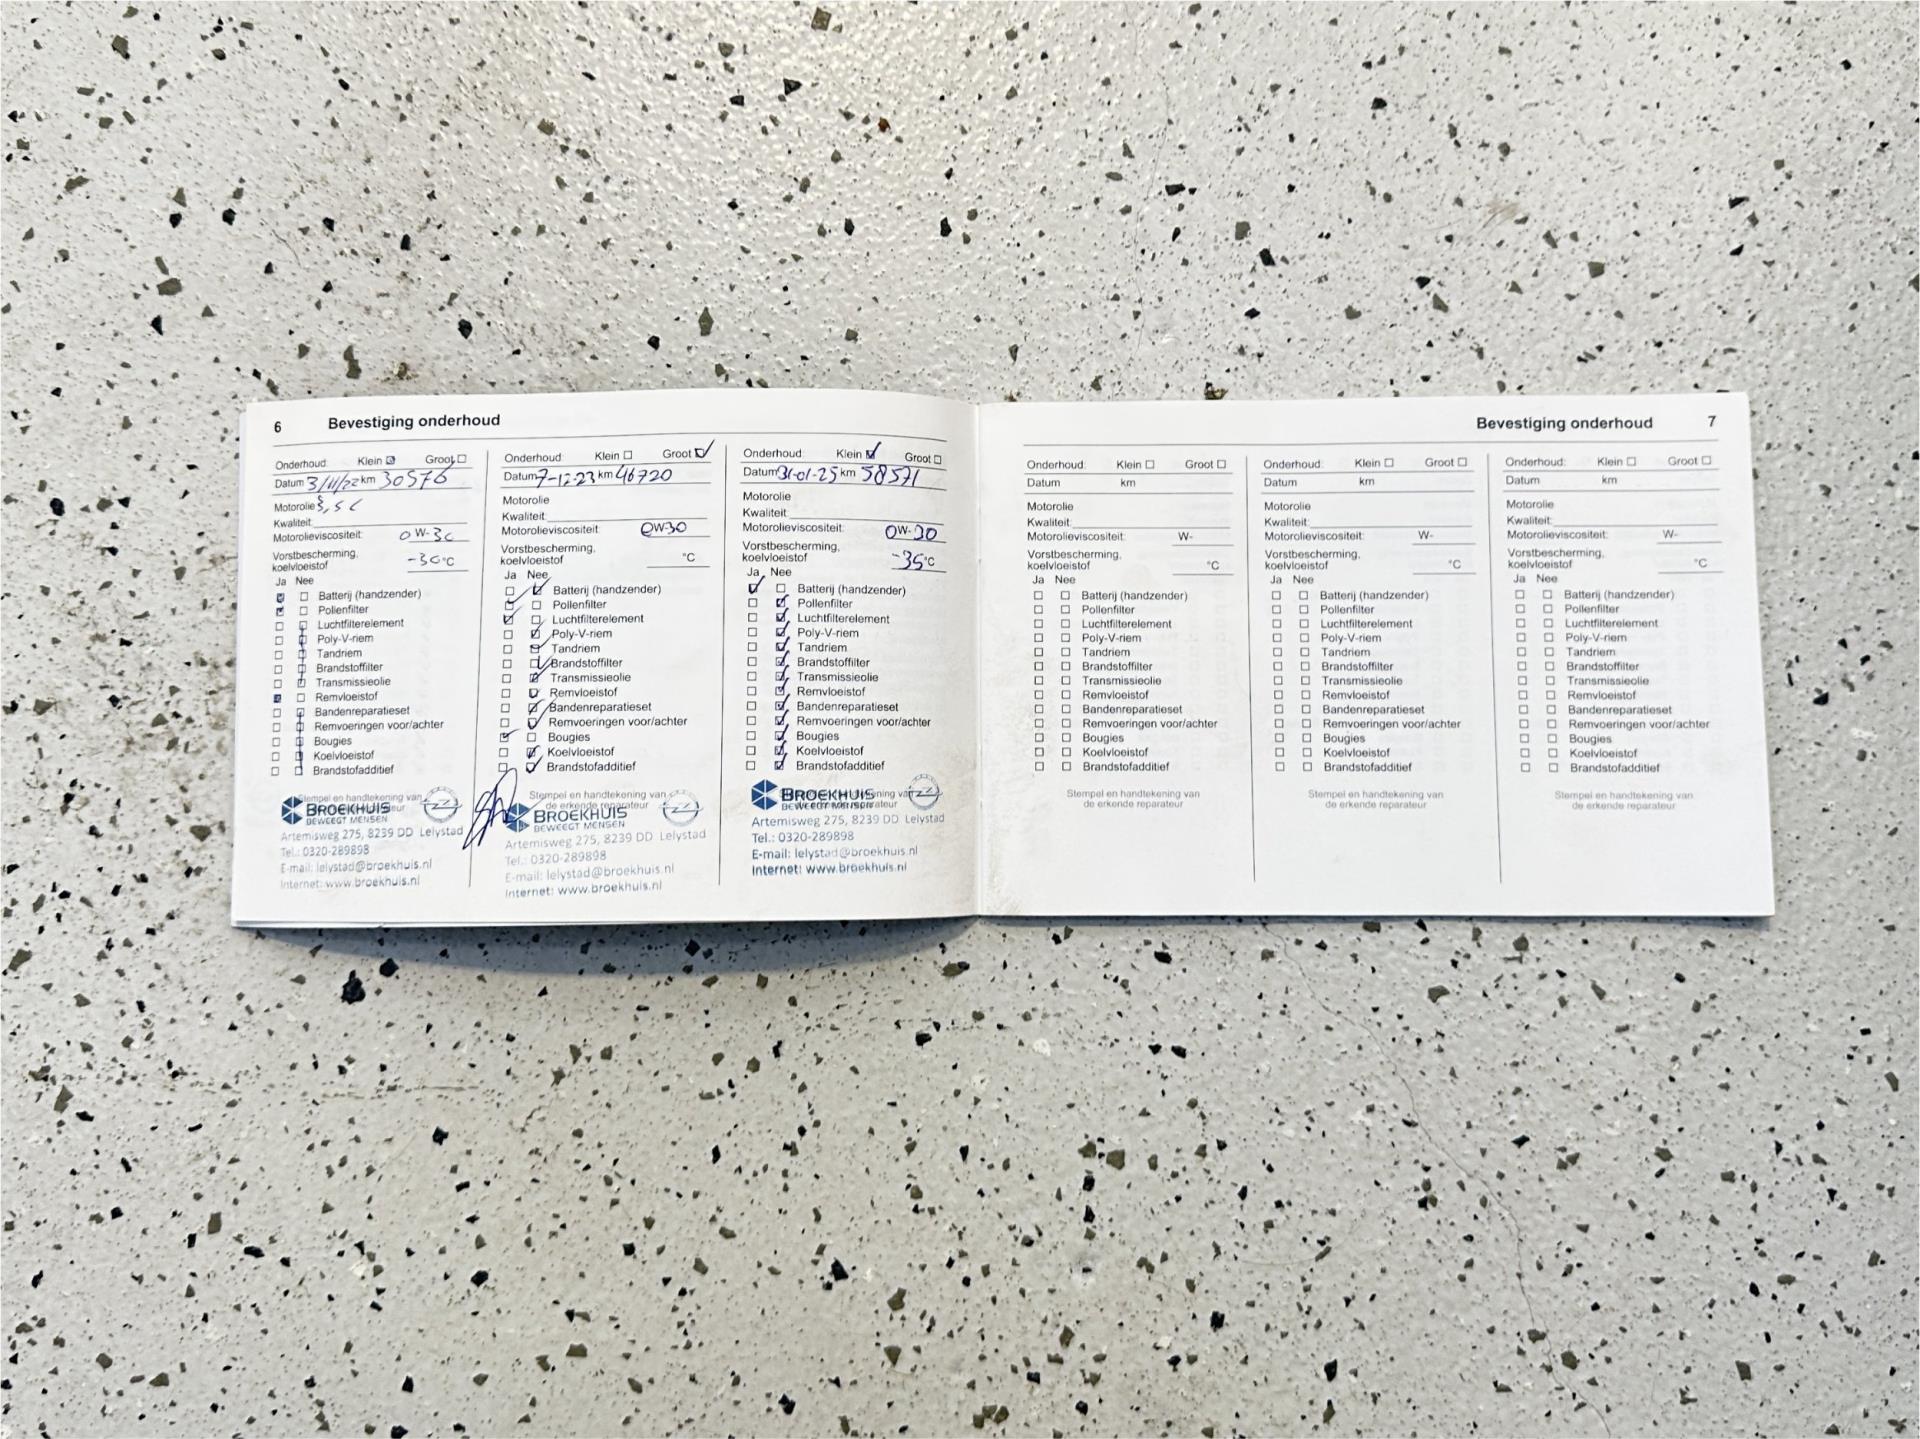 6 Bevestiging onderhoud
Onderhoud: Klein Groot
Datum 3/11/22 km 30576
Motorolie
Kwaliteit:
Motorolieviscositeit: 0 W-30
Vorstbescherming,
koelvloeistof -30 °C
Ja Nee
Batterij (handzender)
Pollenfilter
Luchtfilterelement
Poly-V-riem
Tandriem
Brandstoffilter
Transmissieolie
Remvloeistof
Bandenreparatieset
Remvoeringen voor/achter
Bougies
Koelvloeistof
Brandstofadditief
Stempel en handtekening van
BROEKHUIS
BEWEEGT MENSEN
Artemisweg 275, 8239 DD Lelystad
Tel.: 0320-289898
E-mail: lelystad@broekhuis.nl
Internet: www.broekhuis.nl
Onderhoud: Klein Groot
Datum 7-12-23 km 46720
Motorolie
Kwaliteit:
Motorolieviscositeit: 0W-30
Vorstbescherming,
koelvloeistof °C
Ja Nee
Batterij (handzender)
Pollenfilter
Luchtfilterelement
Poly-V-riem
Tandriem
Brandstoffilter
Transmissieolie
Remvloeistof
Bandenreparatieset
Remvoeringen voor/achter
Bougies
Koelvloeistof
Brandstofadditief
Stempel en handtekening van
de erkende reparateur
BROEKHUIS
BEWEEGT MENSEN
Artemisweg 275, 8239 DD Lelystad
Tel.: 0320-289898
E-mail: lelystad@broekhuis.nl
Internet: www.broekhuis.nl
Onderhoud: Klein Groot
Datum 31-01-25 km 58571
Motorolie
Kwaliteit:
Motorolieviscositeit: 0W-30
Vorstbescherming,
koelvloeistof -35 °C
Ja Nee
Batterij (handzender)
Pollenfilter
Luchtfilterelement
Poly-V-riem
Tandriem
Brandstoffilter
Transmissieolie
Remvloeistof
Bandenreparatieset
Remvoeringen voor/achter
Bougies
Koelvloeistof
Brandstofadditief
BROEKHUIS
BEWEEGT MENSEN
Artemisweg 275, 8239 DD Lelystad
Tel.: 0320-289898
E-mail: lelystad@broekhuis.nl
Internet: www.broekhuis.nl
Bevestiging onderhoud 7
Onderhoud: Klein Groot
Datum km
Motorolie
Kwaliteit:
Motorolieviscositeit: W-
Vorstbescherming,
koelvloeistof °C
Ja Nee
Batterij (handzender)
Pollenfilter
Luchtfilterelement
Poly-V-riem
Tandriem
Brandstoffilter
Transmissieolie
Remvloeistof
Bandenreparatieset
Remvoeringen voor/achter
Bougies
Koelvloeistof
Brandstofadditief
Stempel en handtekening van
de erkende reparateur
Onderhoud: Klein Groot
Datum km
Motorolie
Kwaliteit:
Motorolieviscositeit: W-
Vorstbescherming,
koelvloeistof °C
Ja Nee
Batterij (handzender)
Pollenfilter
Luchtfilterelement
Poly-V-riem
Tandriem
Brandstoffilter
Transmissieolie
Remvloeistof
Bandenreparatieset
Remvoeringen voor/achter
Bougies
Koelvloeistof
Brandstofadditief
Stempel en handtekening van
de erkende reparateur
Onderhoud: Klein Groot
Datum km
Motorolie
Kwaliteit:
Motorolieviscositeit: W-
Vorstbescherming,
koelvloeistof °C
Ja Nee
Batterij (handzender)
Pollenfilter
Luchtfilterelement
Poly-V-riem
Tandriem
Brandstoffilter
Transmissieolie
Remvloeistof
Bandenreparatieset
Remvoeringen voor/achter
Bougies
Koelvloeistof
Brandstofadditief
Stempel en handtekening van
de erkende reparateur